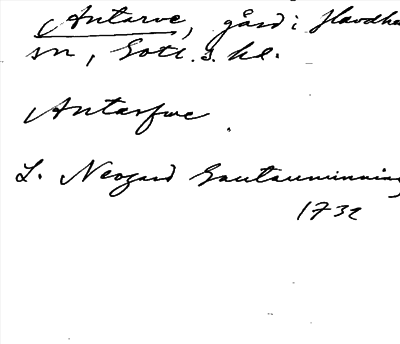 Antarve, gård i Havdhe
sn, Gotl. s. hd.
Antarfwe
L. Neogard Gautauminning
1732